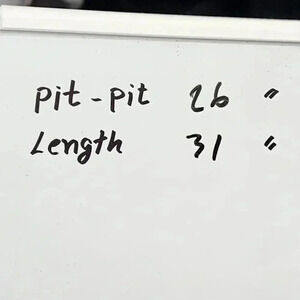 pit - pit 26 "
Length 31 "